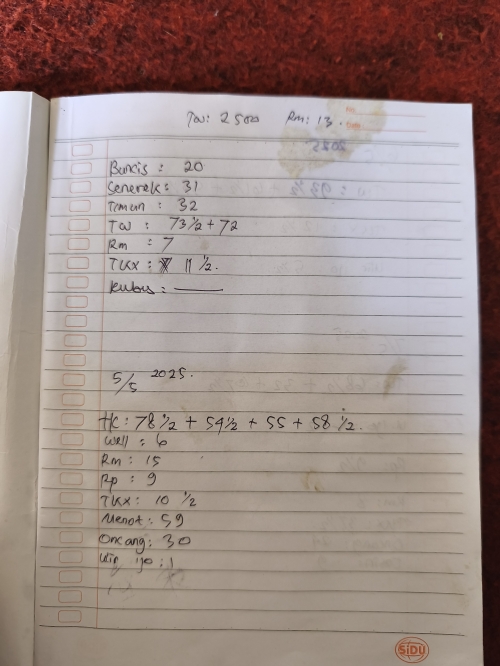 TW: 2500 Rm: 13.
No
Date
2025
Buncis : 20
Senerek : 31
Timun : 32
TW : 73 1/2 + 72
Rm : 7
TKX : 11 1/2.
Kubis :
5/5 2025.
HC : 78 1/2 + 54 1/2 + 55 + 58 1/2.
Wrll : 6
Rm : 15
Rp : 9
TKX : 10 1/2
Menot : 59
Oncang : 30
ijo : 1
SiDU